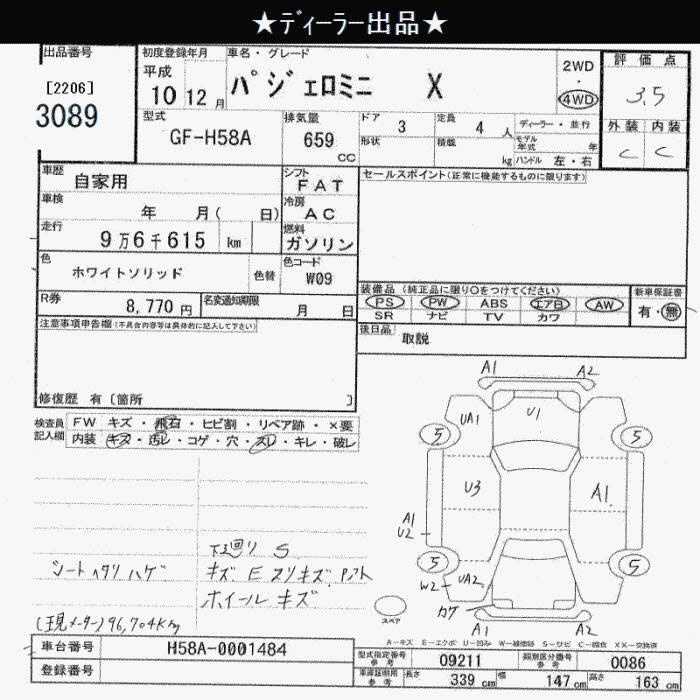 ★ディーラー出品★
出品番号
[2206]
3089
初度登録年月
平成
10 12 月
車名・グレード
パジェロミニ X
2WD
・
4WD
評価点
3.5
外装 内装
C C
型式
GF-H58A
排気量
659
CC
ドア
3
定員
4 人
形状
積載
kg
ディーラー・並行
モデル年式 年
ハンドル 左・右
車歴
自家用
シフト
FAT
車検
年 月( 日)
冷房
AC
走行
9万6千615 km
燃料
ガソリン
色
ホワイトソリッド
色替
色コード
W09
R券
8,770 円
名変通知期限
月 日
セールスポイント(正常に機能するものに限ります)
装備品 (純正品に限り○をつけてください)
PS PW ABS エアB AW
SR ナビ TV カワ
新車保証書
有・無
後日品
取説
注意事項申告欄(不具合内容等は具体的に記入して下さい)
修復歴 有〔箇所 〕
検査員記入欄
FW キズ・飛石・ヒビ割・リペア跡・×要
内装 キズ・汚レ・コゲ・穴・スレ・キレ・破レ
A1 A2
UA1 U1
5 5
U3 A1
A1
U2
5 5
W2 UA2
カケ
A1 A2
スペア
下廻り S
シートヘタリ ハゲ
キズ E スリキズ
ホイール キズ
(現メーター) 96,704Km
A-キズ E-エクボ U-凹み W-補修跡 S-サビ C-腐食 XX-交換済
車台番号 H58A-0001484
登録番号
型式指定番号 参考 09211
類別区分番号 参考 0086
車庫証明用 参考 長さ 339 cm 幅 147 cm 高さ 163 cm